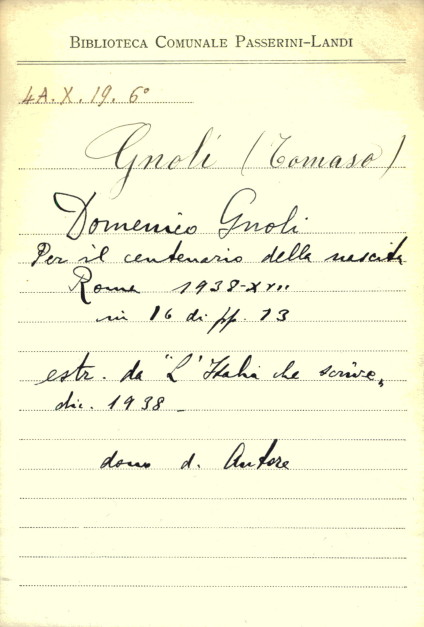 BIBLIOTECA COMUNALE PASSERINI-LANDI
4A. X. 19. 6°
Gnoli (Tomaso)
Domenico Gnoli
Per il centenario della nascita
Roma 1938-XVII
in 16 di pp. 13
estr. da "L'Italia che scrive„
dic. 1938 -
dono d. Autore